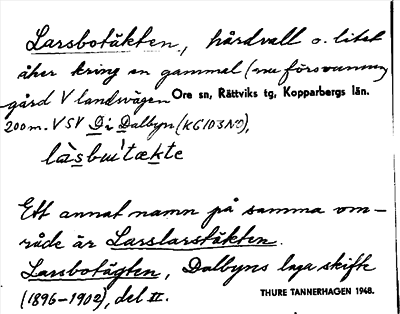 Larsbotäkten, hårdvall o. litet
åker kring en gammal (nu försvunnen)
gård V landsvägen Ore sn, Rättviks tg, Kopparbergs län.
200 m. VSV G i Dalbyn (KG 103 NV),
Ett annat namn på samma om-
råde är Larslarstäkten.
Larsbotägten, Dalbyns laga skifte
(1896-1902), del II.
THURE TANNERHAGEN 1948.